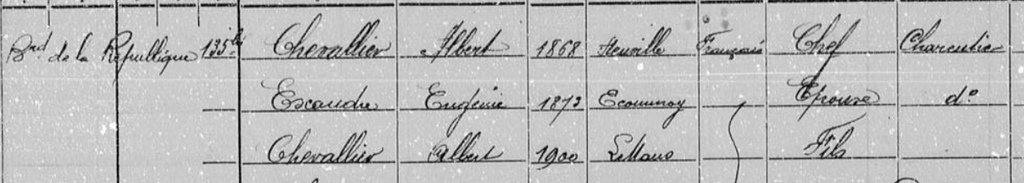 Bd de la République 135bis Chevallier Albert 1868 Neuville Français Chef Charcutier
Escandre Eugénie 1873 Ecommoy Epouse do
Chevallier Albert 1900 Le Mans Fils